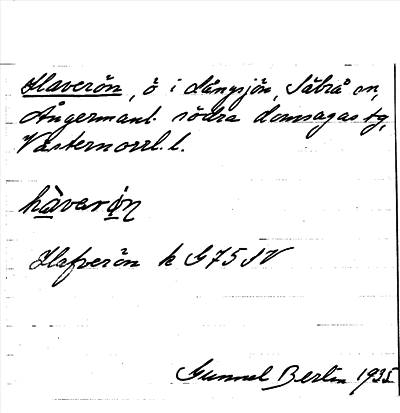 Haverön, ö i Långsjön, Säbrå sn,
Ångermanl. södra domsagas tg,
Västernorrl. l.
hàverøn
Hafverön k G75SV
Gunnel Berlin 1935